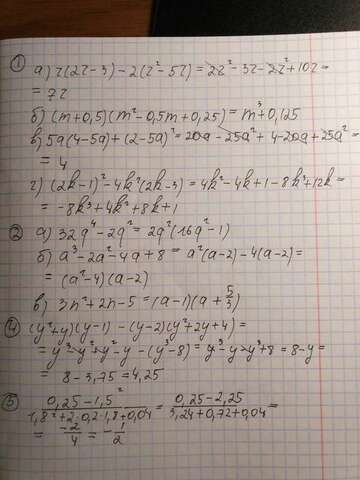 ① а) z(2z-3)-2(z²-5z)=2z²-3z-2z²+10z=
= 7z
б) (m+0,5)(m²-0,5m+0,25)=m³+0,125
в) 5a(4-5a)+(2-5a)²=20a-25a²+4-20a+25a²=
= 4
г) (2k-1)²-4k²(2k-3)=4k²-4k+1-8k³+12k=
= -8k³+4k²+8k+1
② а) 32q⁴-2q²=2q²(16q²-1)
б) a³-2a²-4a+8=a²(a-2)-4(a-2)=
= (a²-4)(a-2)
в) 3n²+2n-5=(a-1)(a+5/3)
④ (y²+y)(y-1)-(y-2)(y²+2y+4)=
= y³-y²+y²-y-(y³-8)=y³-y-y³+8=8-y=
= 8-3,75=4,25
⑤ 0,25-1,5²/1,8²+2·0,2·1,8+0,04 = 0,25-2,25/3,24+0,72+0,04 =
= -2/4 = -1/2